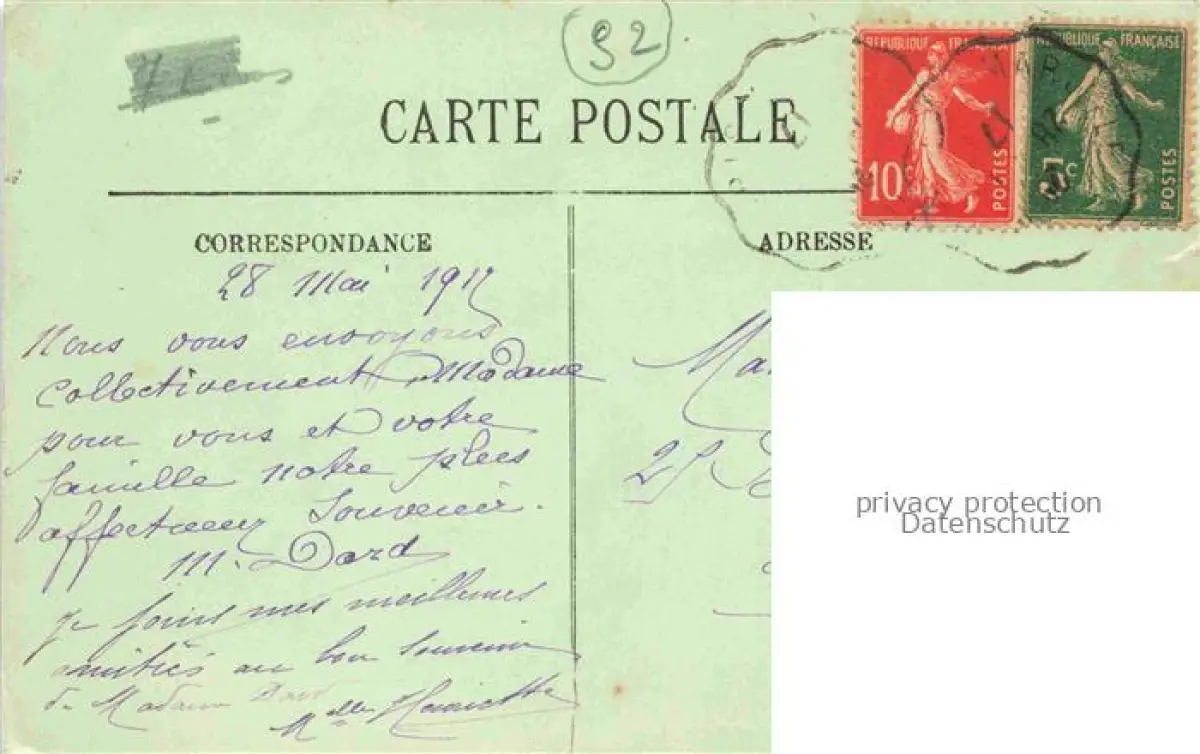 92
CARTE POSTALE
REPUBLIQUE FRANÇAISE
10c
POSTES
REPUBLIQUE FRANÇAISE
5c
POSTES
CORRESPONDANCE
ADRESSE
28 Mai 1917
Nous vous envoyons
collectivement Madame
pour vous et votre
famille notre plus
affectueux Souvenir.
M. Dard
Je joins mes meilleures
amitiés au bon Souvenir
de Madame Dard
Mlle Henriette
Ma
25
privacy protection
Datenschutz